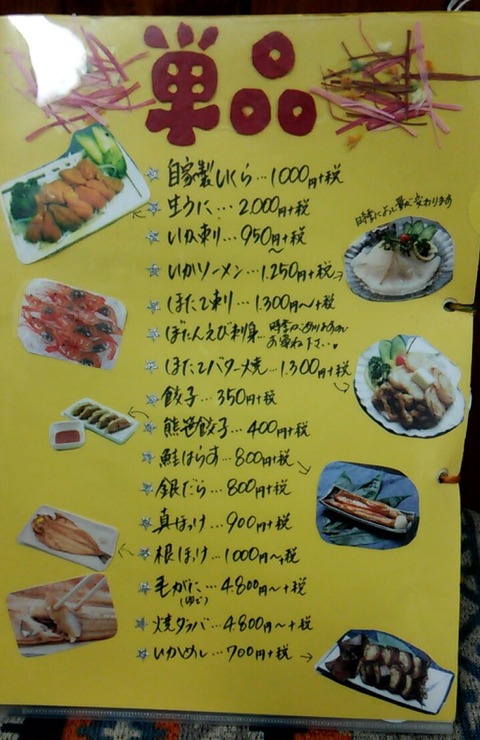 単品
自家製いくら…1000円+税
生うに…2,000円+税
時季によって量が変わります
いか刺…950円〜+税
いかソーメン…1.250円+税
ほたて刺…1.300円〜+税
ぼたんえび刺身…
お尋ね下さい。
ほたてバター焼…1.300円+税
餃子…350円+税
熊笹餃子…400円+税
鮭はらす…800円+税
銀だら…800円+税
真ほっけ…900円+税
根ぼっけ…1000円〜+税
毛がに…4.800円〜+税
(ゆで)
焼タラバ…4.800円〜+税
いかめし…700円+税